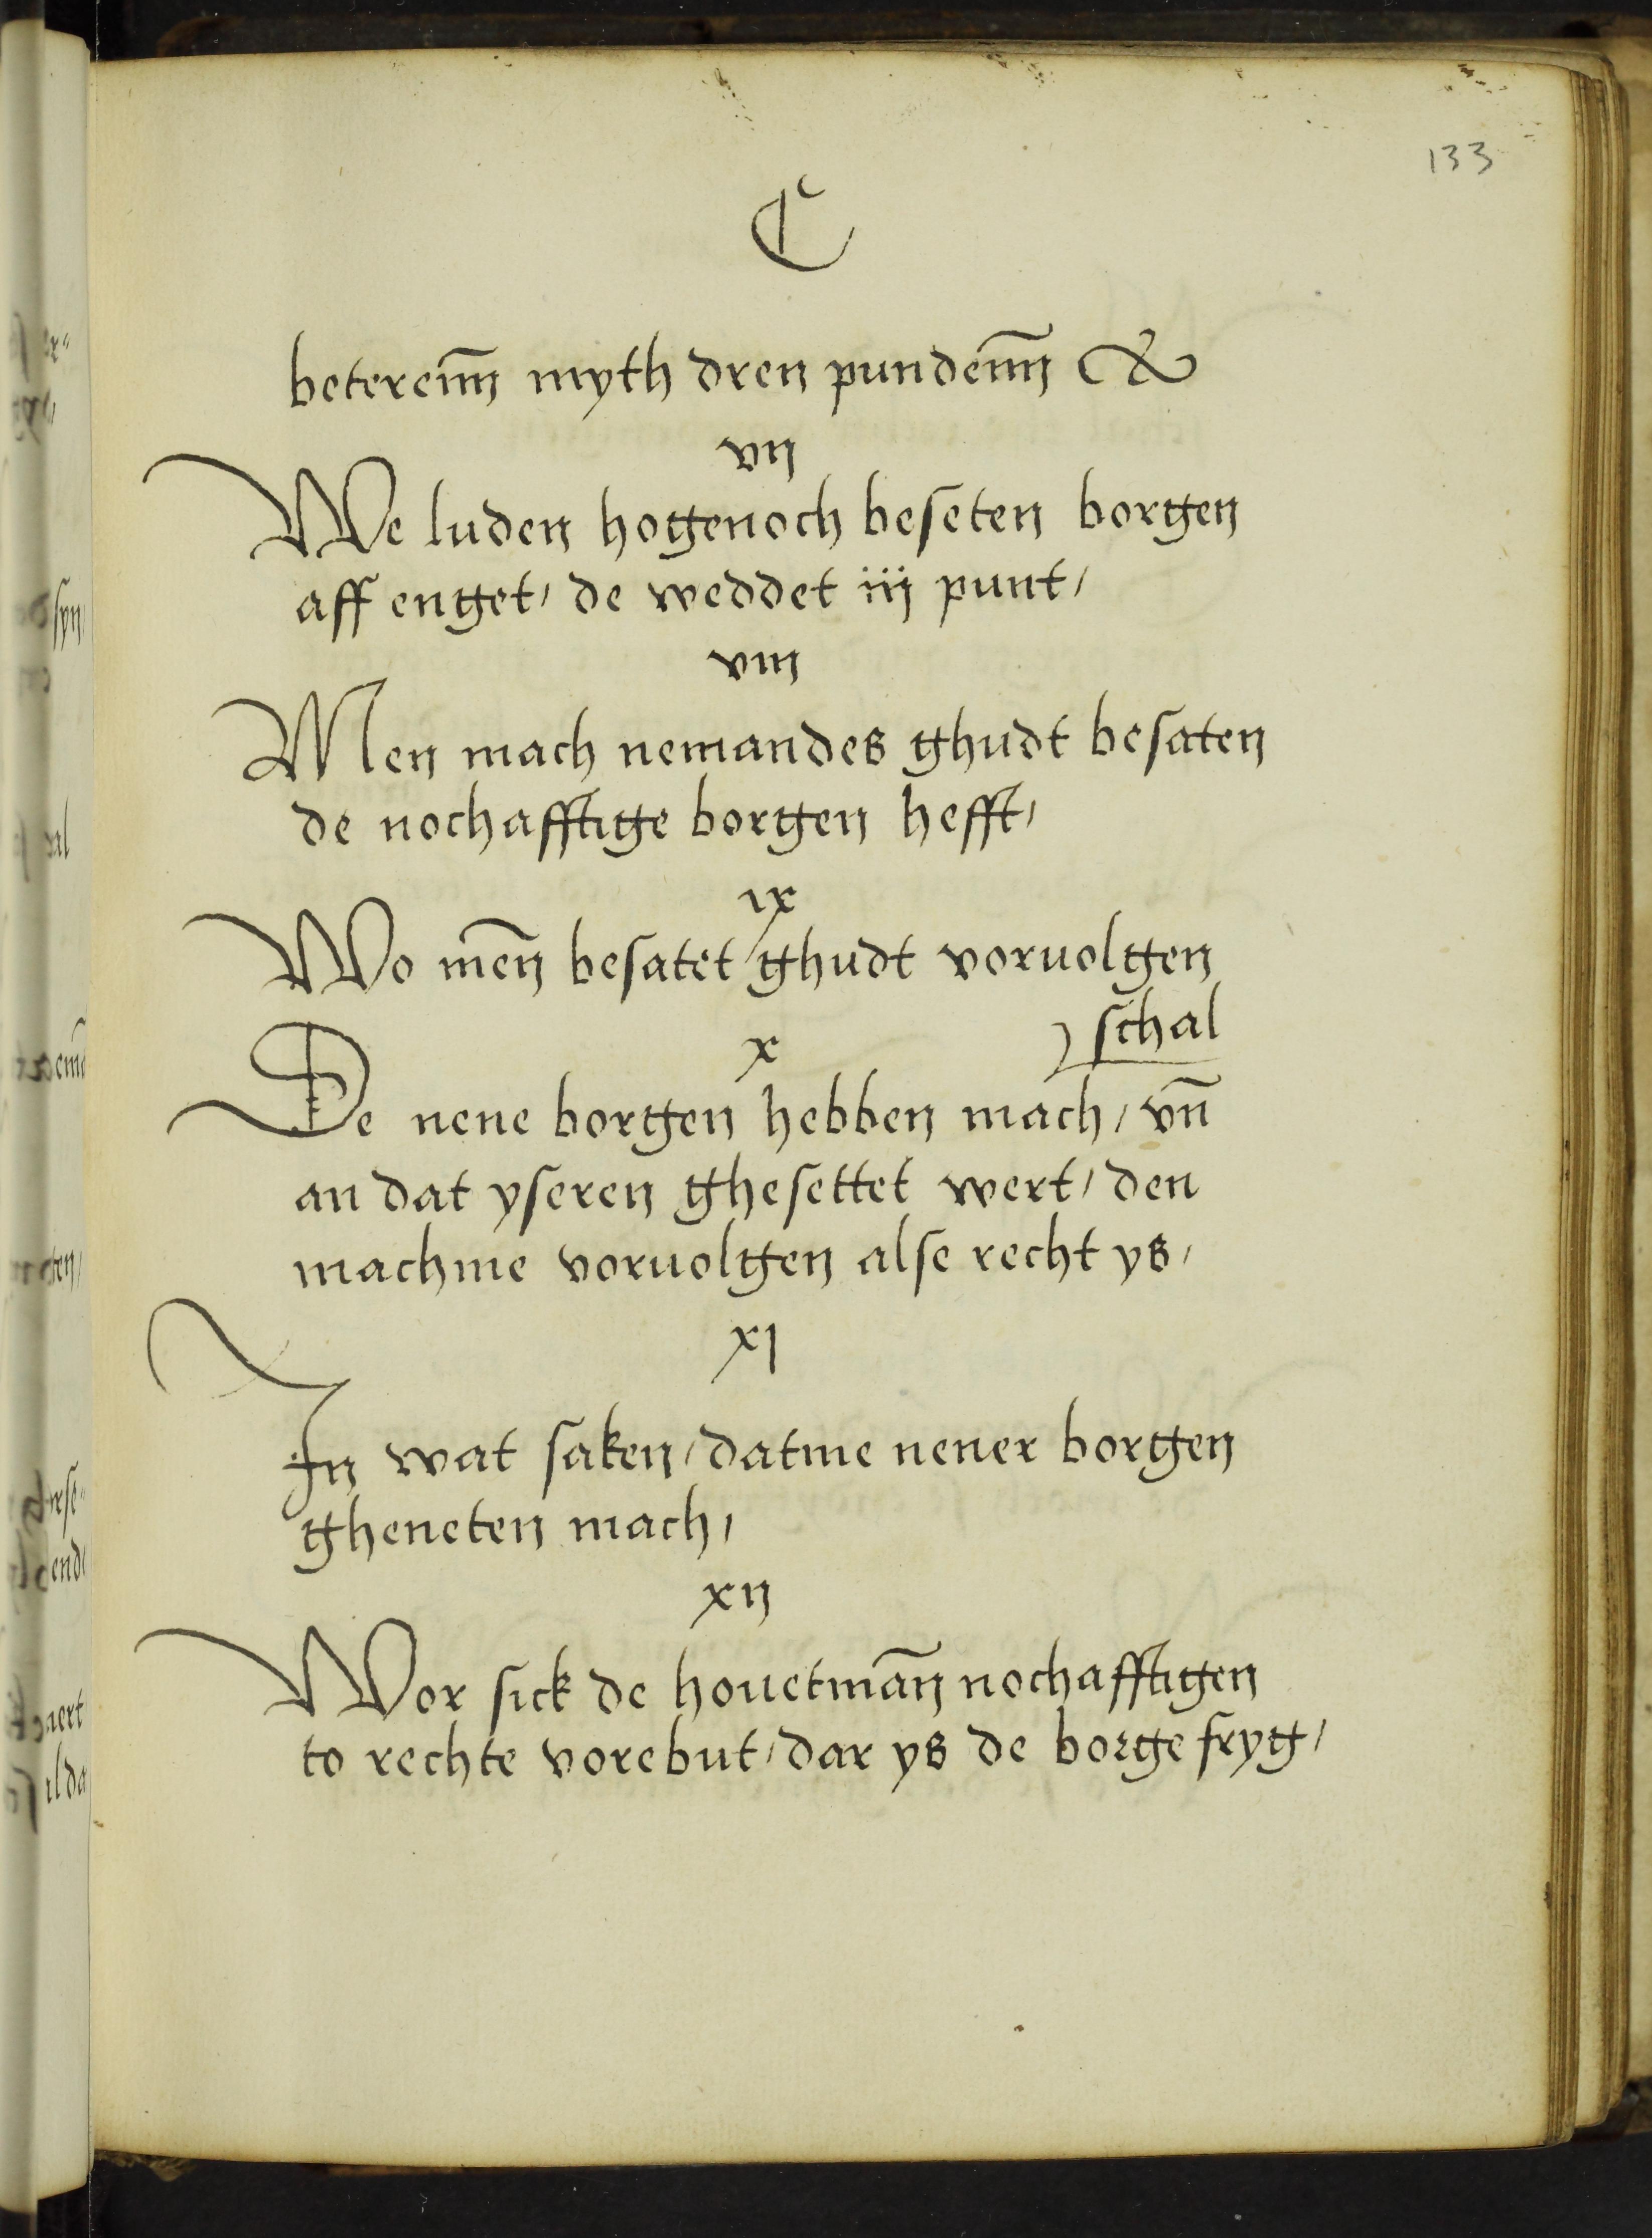 133
C
betereim̄ myth dren pundeim̄ &
vij
We luden hogenoch beseten borgen
aff enget / de weddet iij punt /
viij
Men mach nemandes ghudt besaten
de nochafftige borgen hefft /
ix
Wo mēn besatet / ghudt voruolgen
schal
x
De nene borgen hebben mach / vn̄
an dat yseren ghesettet wert / den
machme voruolgen alse recht ys /
xj
In wat saken / datme nener borgen
gheneten mach /
xij
Wor sick de houetmān nochafftigen
to rechte vorebut / dar ys de borge fryg /